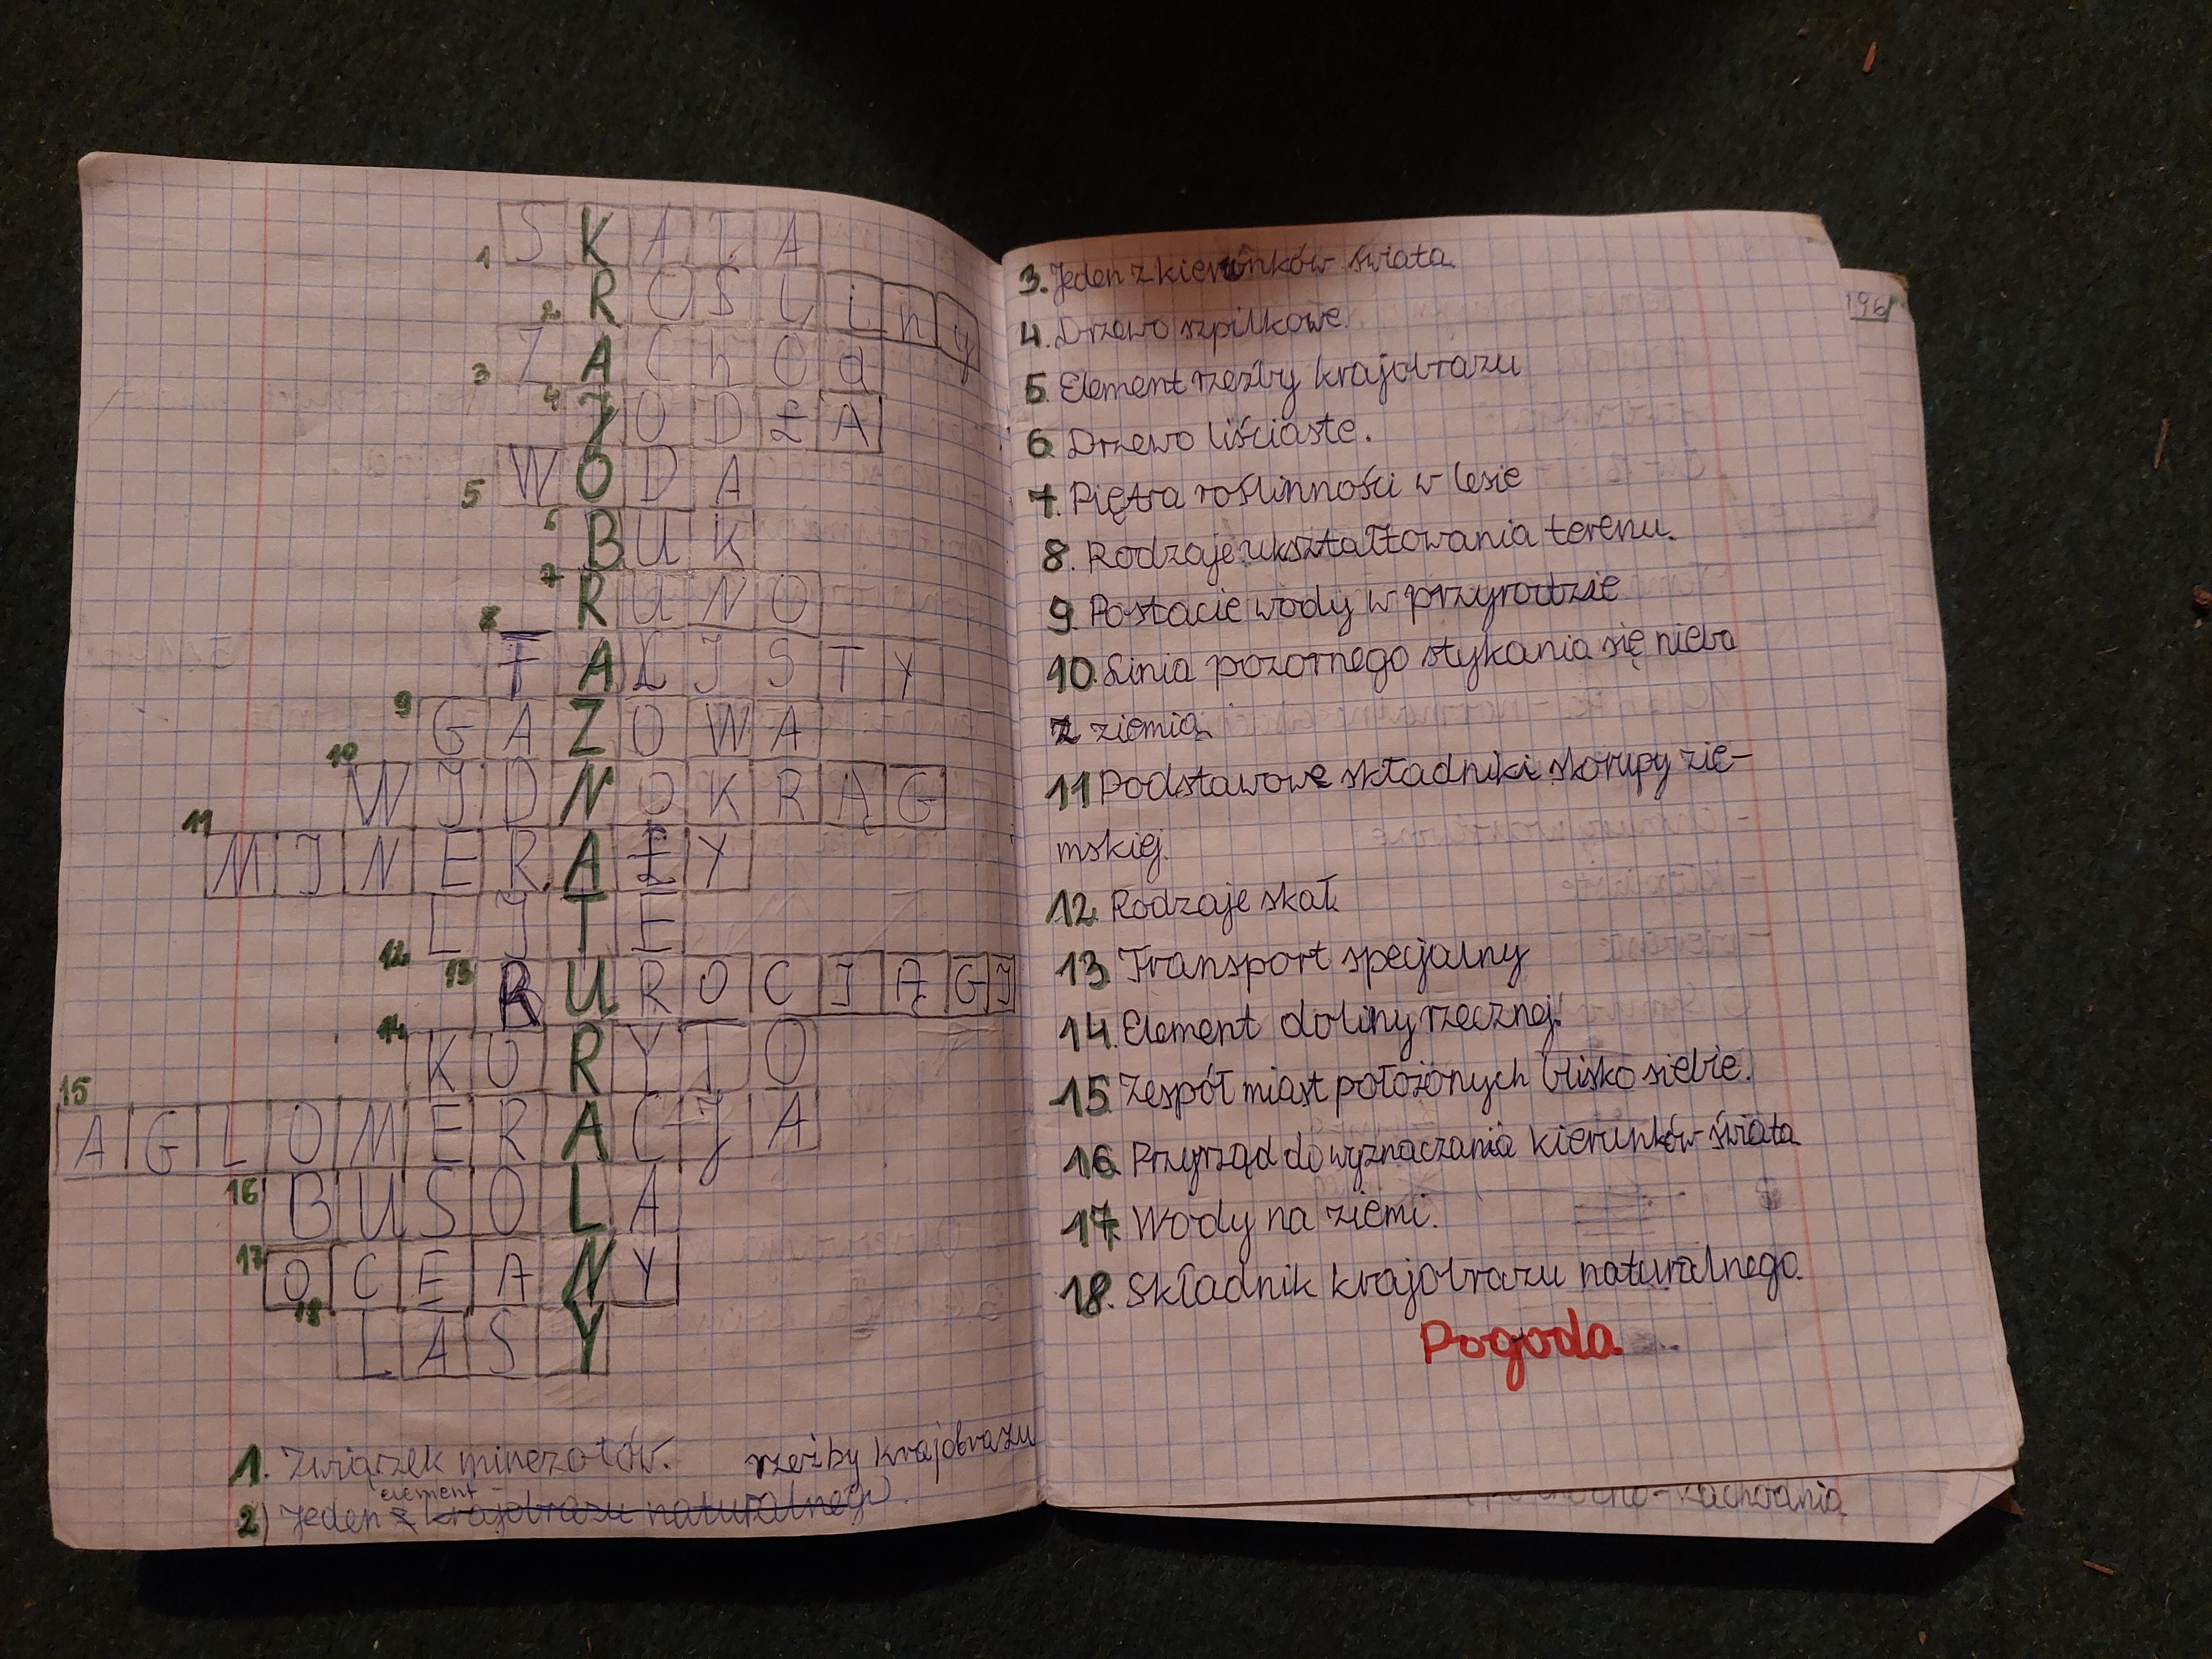 1 SKAŁA
2 ROŚLiny
3 ZAChOd
4 JODŁA
5 WODA
6 BUK
7 RUNO
8 FALISTY
9 GAZOWA
10 WIDNOKRĄG
11 MINERAŁY
12 LITE
13 RUROCIĄGI
14 KORYTO
15 AGLOMERACJA
16 BUSOLA
17 OCEANY
18 LASY
1. Związek minerałów.
rzeźby krajobrazu
element
2) Jeden z krajobrazu naturalnego.
3. Jeden z kierunków świata
4. Drzewo szpilkowe.
5. Element rzeźby krajobrazu
6. Drzewo liściaste.
7. Piętra roślinności w lesie
8. Rodzaje ukształtowania terenu.
9. Postacie wody w przyrodzie
10. Linia pozornego stykania się nieba
z ziemią
11 Podstawowe składniki skorupy zie-
mskiej.
12. Rodzaje skał
13. Transport specjalny
14. Element doliny rzecznej.
15. Zespół miast położonych blisko siebie.
16. Przyrząd do wyznaczania kierunków świata
17. Wody na ziemi.
18. Składnik krajobrazu naturalnego.
Pogoda
196